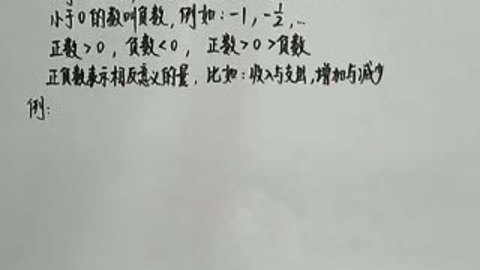 小于0的数叫负数,例如:-1,-1/2,...
正数>0,负数<0,正数>0>负数
正负数表示相反意义的量,比如:收入与支出,增加与减少
例: